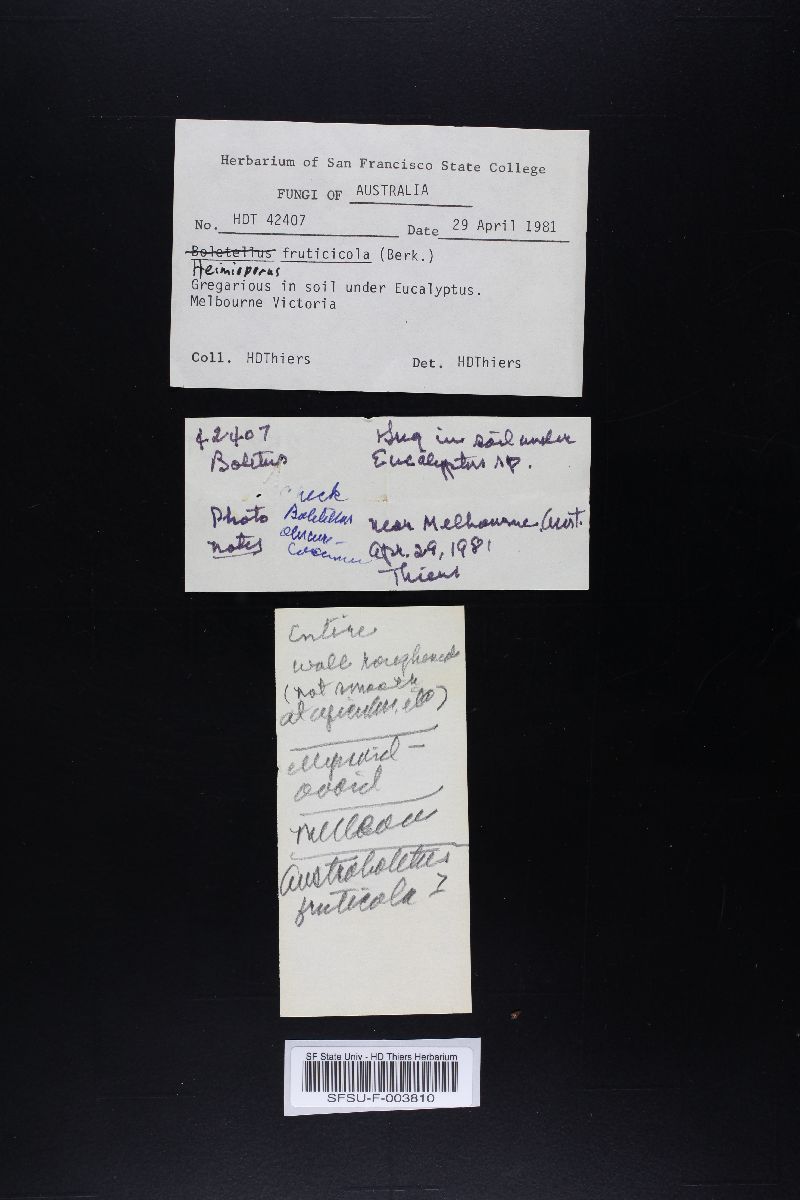 Herbarium of San Francisco State College
FUNGI OF AUSTRALIA
No. HDT 42407 Date 29 April 1981
Boletellus fruticicola (Berk.)
Heimioporus
Gregarious in soil under Eucalyptus.
Melbourne Victoria
Coll. HDThiers Det. HDThiers
42407
Boletus
Greg in soil under
Eucalyptus sp.
Photo
notes
check
Boletellus
obscure-
near Melbourne, Aust.
Apr. 29, 1981
Thiers
Entire
wall roughened
(not smooth
at apiculus, etc)
ellipsoid -
ovoid
Austroboletus
fruticola I
SF State Univ - HD Thiers Herbarium
SFSU-F-003810